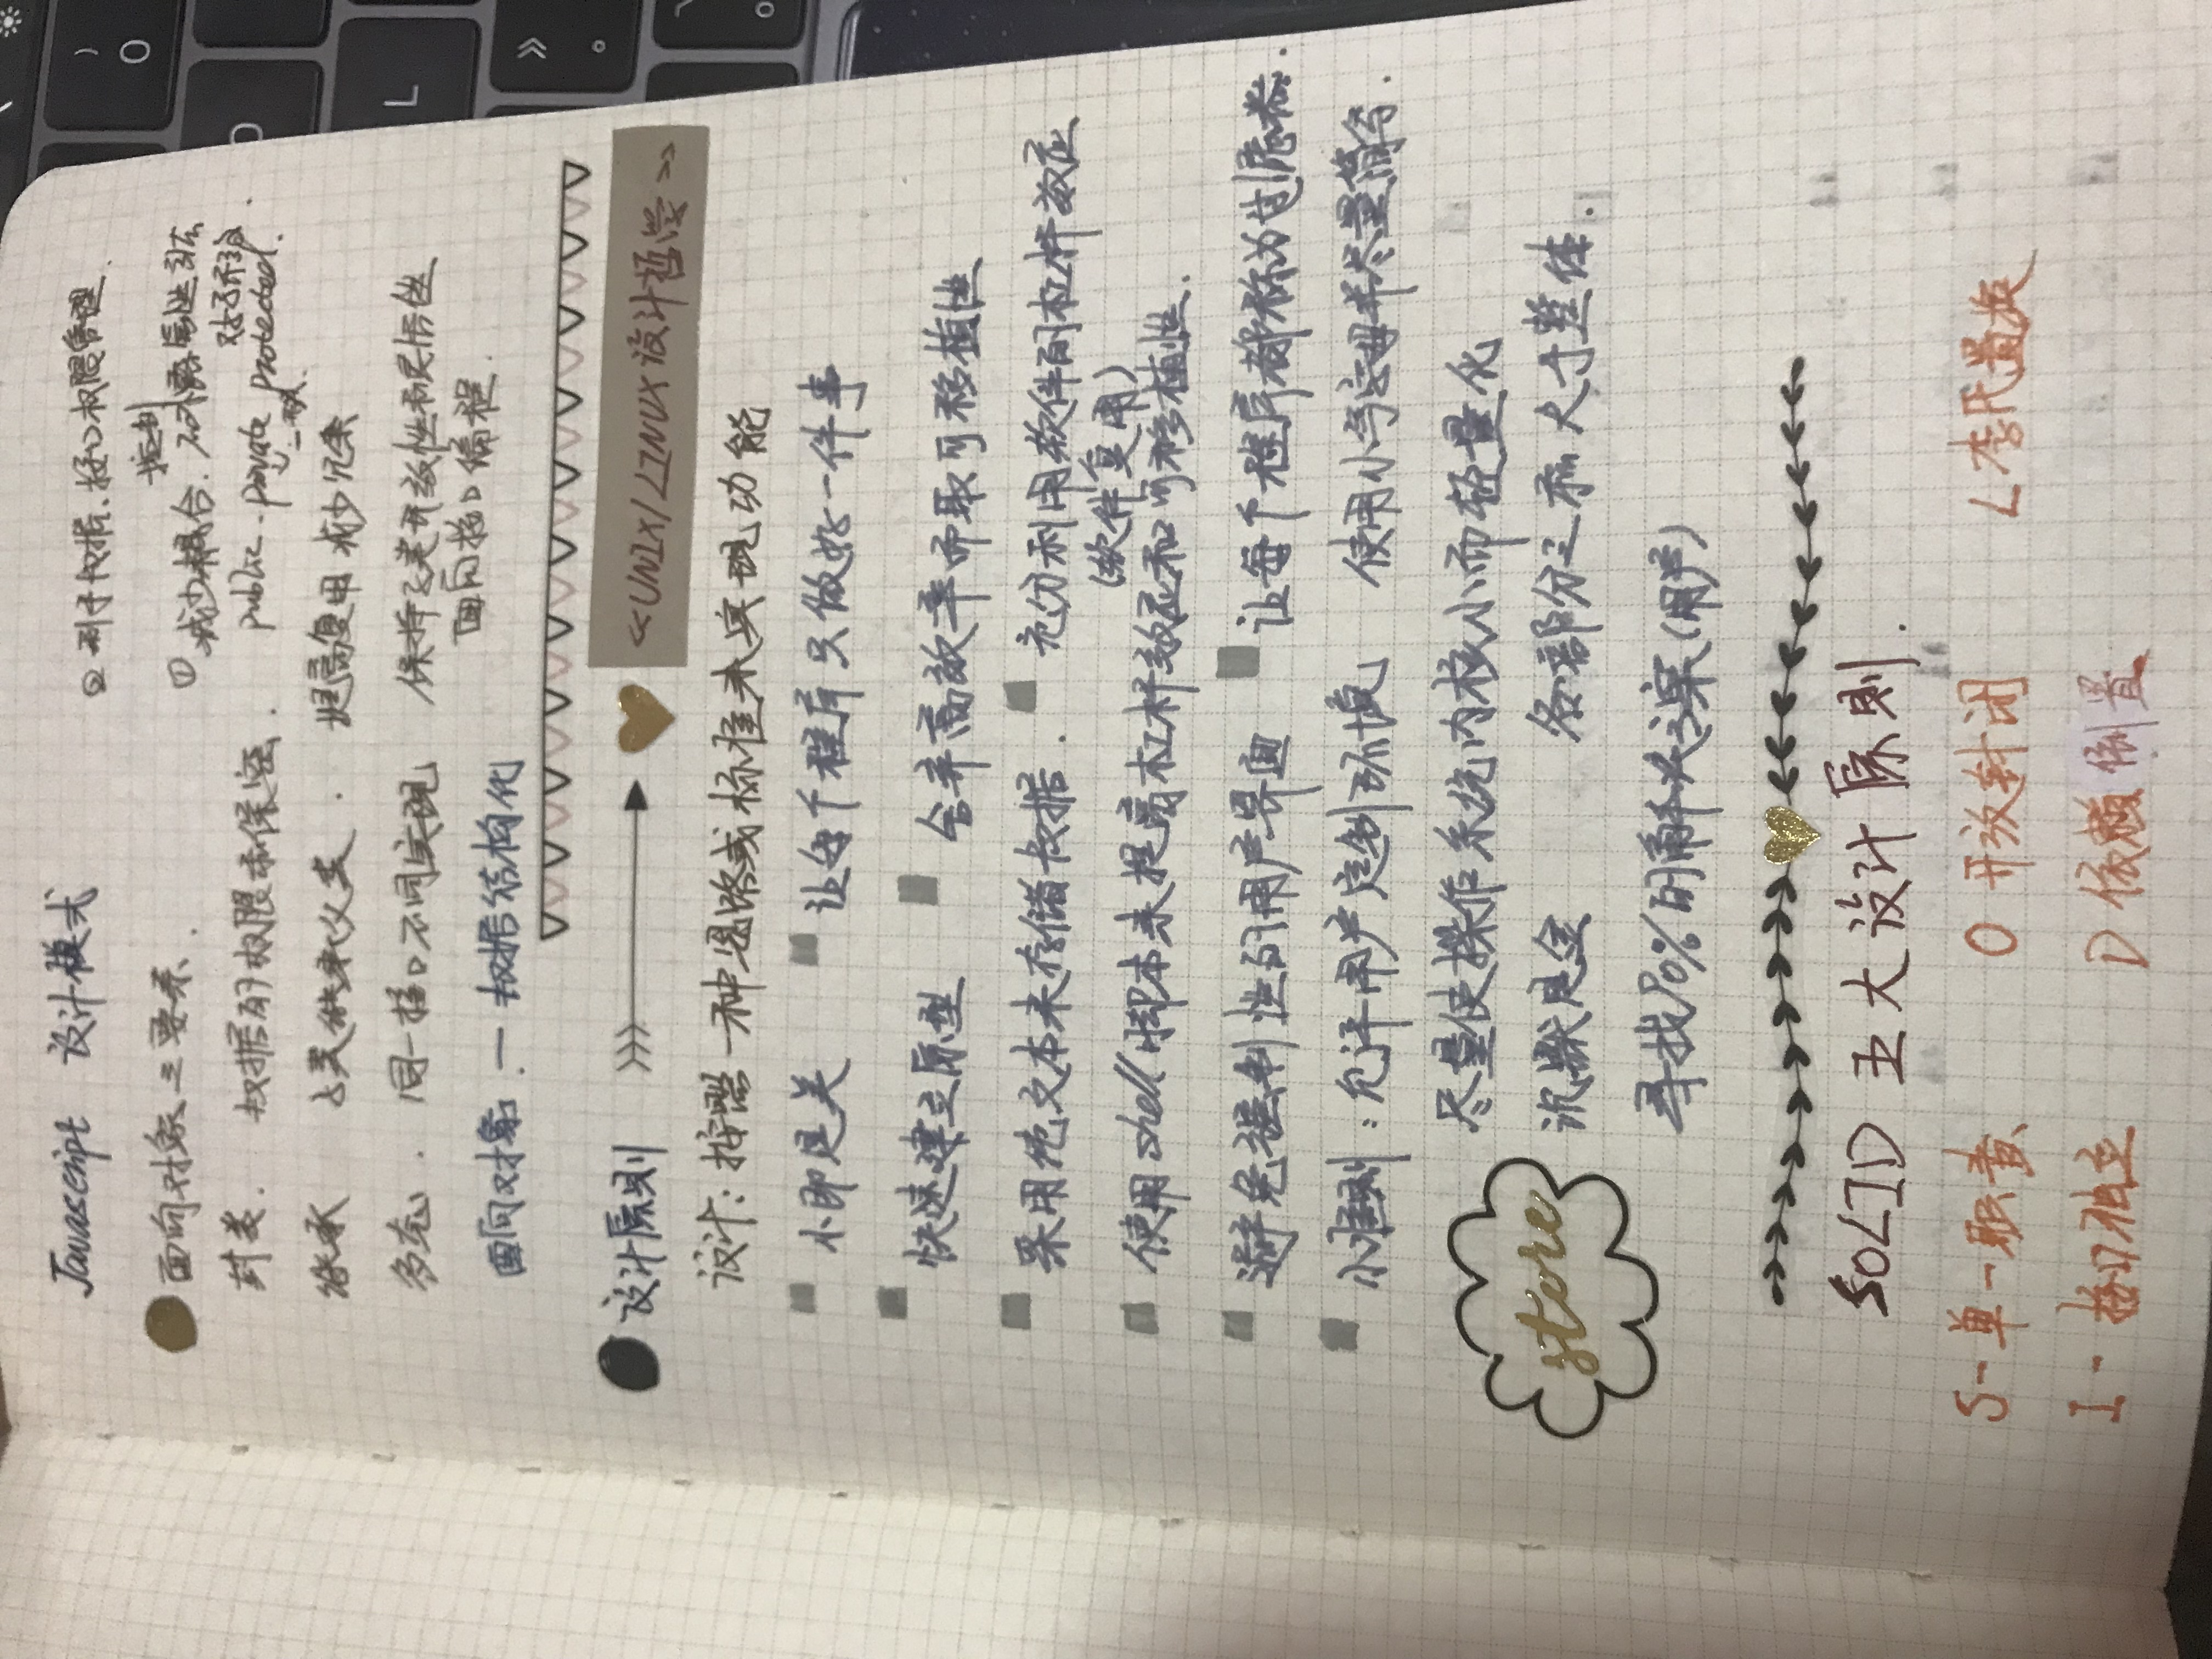 Javascript 设计模式
② 利于数据、接口权限管理.
面向对象三要素.
控制
① 减少耦合. 不外露属性
封装. 数据的权限和保密.
对子开放.
public. private protected.
继承 子类继承父类. 提高复用 减少冗余
多态. 同一接口不同实现 保持子类开放性和灵活性
面向接口编程.
面向对象. — 数据结构化
设计原则
《UNIX/LINUX设计哲学》
设计:按照一种思路或标准来实现功能
小即是美 让每个程序只做好一件事
快速建立原型 舍弃高效率而取可移植性
采用纯文本来存储数据. 充分利用软件的杠杆效应
(软件复用)
使用shell脚本来提高杠杆效应和可移植性.
避免强制性的用户界面 让每个程序都称为过滤器.
小准则:允许用户定制环境 使用小写字母并尽量简写.
尽量使操作系统内核小而轻量化
store
沉默是金 各部分之和大于整体.
寻找90%的解决方案(用户)
SOLID 五大设计原则.
S-单一职责 O 开放封闭 L 李氏置换
I - 接口独立 D 依赖倒置